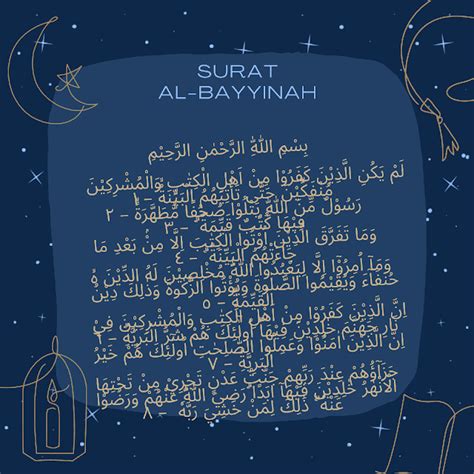 SURAT
AL-BAYYINAH
بِسْمِ اللّٰهِ الرَّحْمٰنِ الرَّحِيْمِ
لَمْ يَكُنِ الَّذِيْنَ كَفَرُوْا مِنْ اَهْلِ الْكِتٰبِ وَالْمُشْرِكِيْنَ
مُنْفَكِّيْنَ حَتّٰى تَأْتِيَهُمُ الْبَيِّنَةُ – ١
رَسُوْلٌ مِّنَ اللّٰهِ يَتْلُوْا صُحُفًا مُّطَهَّرَةً – ٢
فِيْهَا كُتُبٌ قَيِّمَةٌ – ٣
وَمَا تَفَرَّقَ الَّذِيْنَ اُوْتُوا الْكِتٰبَ اِلَّا مِنْۢ بَعْدِ مَا
جَاۤءَتْهُمُ الْبَيِّنَةُ – ٤
وَمَآ اُمِرُوْٓا اِلَّا لِيَعْبُدُوا اللّٰهَ مُخْلِصِيْنَ لَهُ الدِّيْنَ ەۙ
حُنَفَاۤءَ وَيُقِيْمُوا الصَّلٰوةَ وَيُؤْتُوا الزَّكٰوةَ وَذٰلِكَ دِيْنُ
الْقَيِّمَةِ – ٥
اِنَّ الَّذِيْنَ كَفَرُوْا مِنْ اَهْلِ الْكِتٰبِ وَالْمُشْرِكِيْنَ فِيْ
نَارِ جَهَنَّمَ خٰلِدِيْنَ فِيْهَا اُولٰۤىِٕكَ هُمْ شَرُّ الْبَرِيَّةِ – ٦
اِنَّ الَّذِيْنَ اٰمَنُوْا وَعَمِلُوا الصّٰلِحٰتِ اُولٰۤىِٕكَ هُمْ خَيْرُ
الْبَرِيَّةِ – ٧
جَزَاۤؤُهُمْ عِنْدَ رَبِّهِمْ جَنّٰتُ عَدْنٍ تَجْرِيْ مِنْ تَحْتِهَا
الْاَنْهٰرُ خٰلِدِيْنَ فِيْهَآ اَبَدًا رَضِيَ اللّٰهُ عَنْهُمْ وَرَضُوْا
عَنْهُ ذٰلِكَ لِمَنْ خَشِيَ رَبَّهٗ – ٨